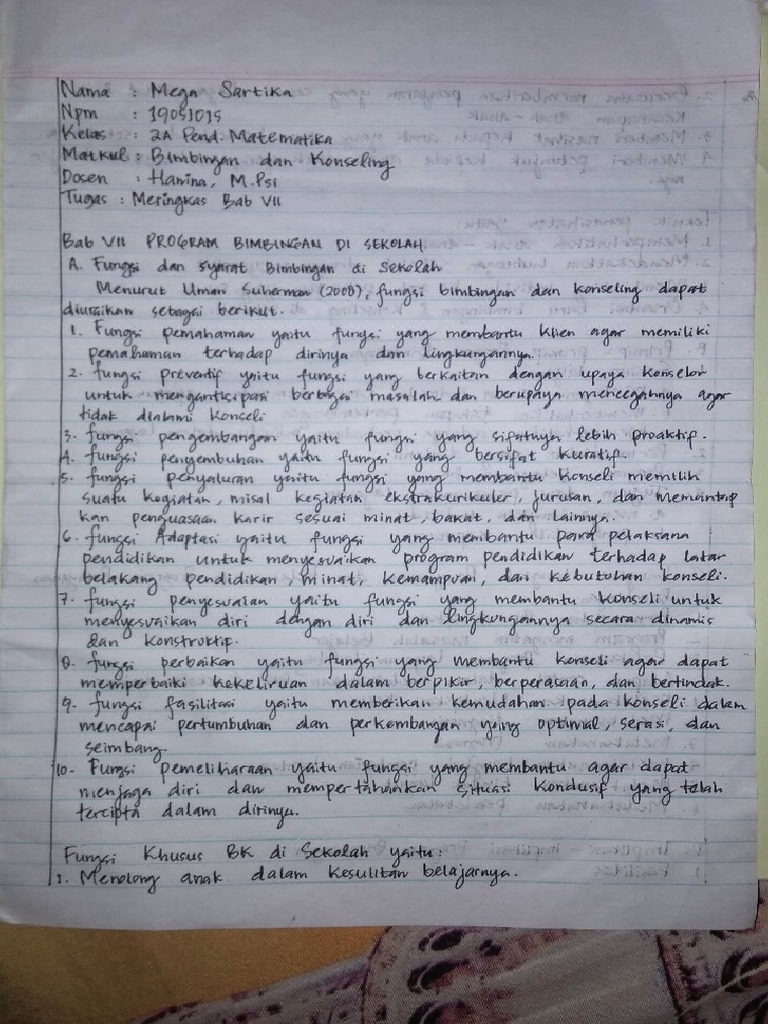 Nama : Mega Sartika
Npm : 19051015
Kelas : 2A Pend. Matematika
Matkul : Bimbingan dan Konseling
Dosen : Hanina, M.Psi
Tugas : Meringkas Bab VII
Bab VII PROGRAM BIMBINGAN DI SEKOLAH
A. Fungsi dan syarat Bimbingan di Sekolah
Menurut Uman Suherman (2008), fungsi bimbingan dan konseling dapat
diuraikan sebagai berikut.
1. Fungsi pemahaman yaitu fungsi yang membantu klien agar memiliki
pemahaman terhadap dirinya dan lingkungannya.
2. fungsi preventif yaitu fungsi yang berkaitan dengan upaya konselor
untuk mengantisipasi berbagai masalah dan berupaya mencegahnya agar
tidak dialami konseli
3. fungsi pengembangan yaitu fungsi yang sifatnya lebih proaktif.
4. fungsi penyembuhan yaitu fungsi yang bersifat kuratif.
5. fungsi penyaluran yaitu fungsi yang membantu konseli memilih
suatu kegiatan, misal kegiatan ekstrakurikuler, jurusan, dan memantap
kan penguasaan karir sesuai minat, bakat, dan lainnya.
6. fungsi Adaptasi yaitu fungsi yang membantu para pelaksana
pendidikan untuk menyesuaikan program pendidikan terhadap latar
belakang pendidikan, minat, kemampuan, dan kebutuhan konseli.
7. fungsi penyesuaian yaitu fungsi yang membantu konseli untuk
menyesuaikan diri dengan diri dan lingkungannya secara dinamis
dan konstruktif.
8. fungsi perbaikan yaitu fungsi yang membantu konseli agar dapat
memperbaiki kekeliruan dalam berpikir, berperasaan, dan bertindak.
9. fungsi fasilitasi yaitu memberikan kemudahan pada konseli dalam
mencapai pertumbuhan dan perkembangan yang optimal, serasi, dan
seimbang.
10. Fungsi pemeliharaan yaitu fungsi yang membantu agar dapat
menjaga diri dan mempertahankan situasi kondusif yang telah
tercipta dalam dirinya.
Fungsi Khusus BK di Sekolah yaitu:
1. Menolong anak dalam kesulitan belajarnya.